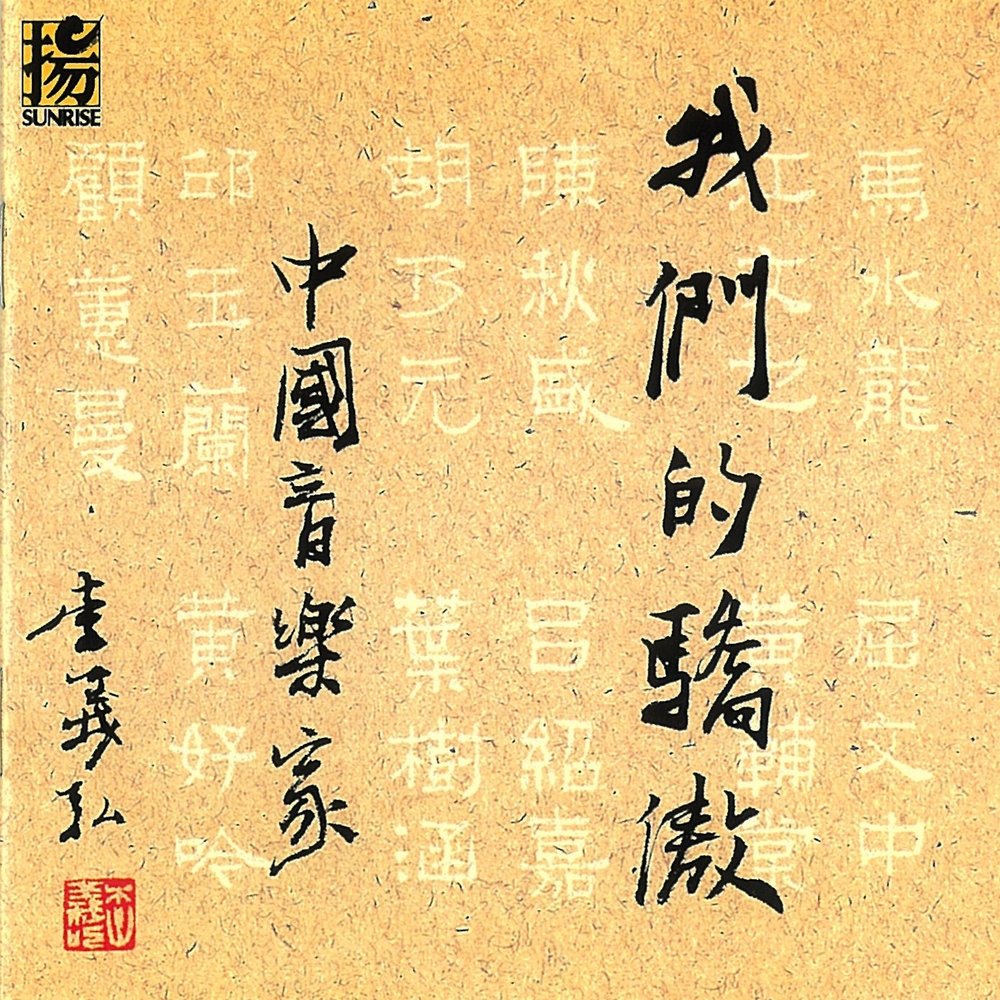 揚
SUNRISE
我們的驕傲
中國音樂家
李義弘
馬水龍
江文也
陳秋盛
胡乃元
邱玉蘭
顧蕙曼
屈文中
黃輔棠
呂紹嘉
葉樹涵
黃好吟